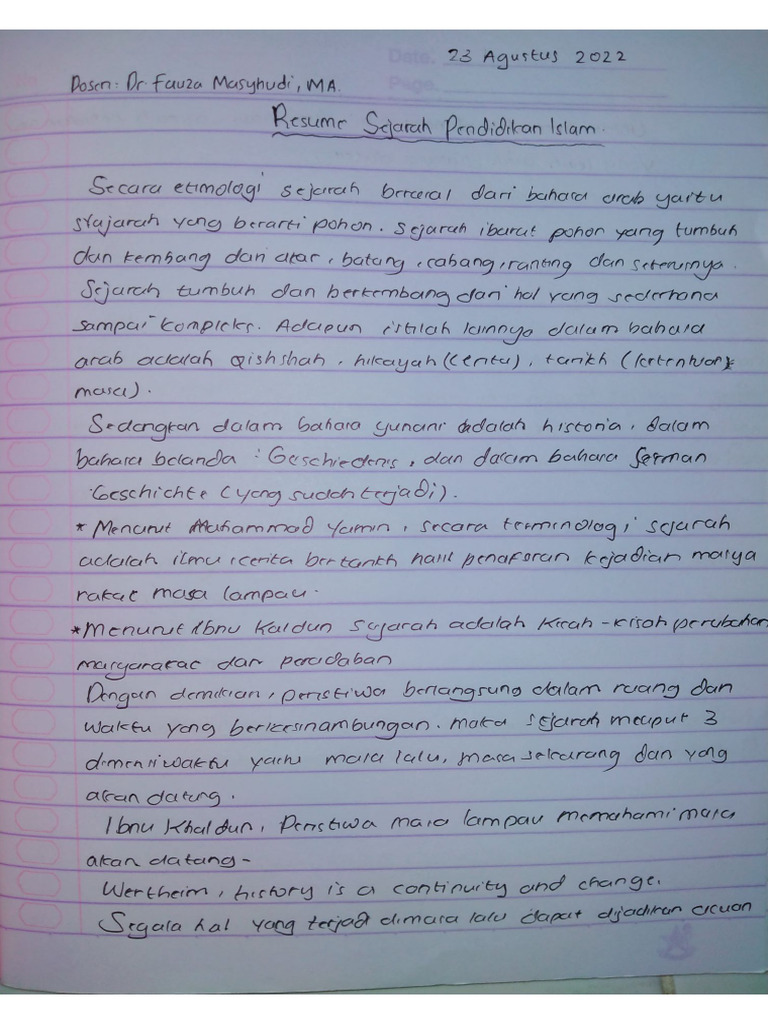 Date. 23 Agustus 2022
Page.
Dosen: Dr Fauza Masyhudi, MA.
Resume Sejarah Pendidikan Islam.
Secara etimologi sejarah berasal dari bahasa arab yaitu
syajarah yang berarti pohon. Sejarah ibarat pohon yang tumbuh
dan kembang dari akar, batang, cabang, ranting dan seterusnya.
Sejarah tumbuh dan berkembang dari hal yang sederhana
sampai kompleks. Adapun istilah lainnya dalam bahasa
arab adalah Qishshah, hikayah (cerita), tarikh (ketentuan
masa).
Sedangkan dalam bahasa yunani adalah historia, dalam
bahasa belanda : Geschiedenis, dan dalam bahasa Jerman
Geschichte (yang sudah terjadi).
* Menurut Muhammad Yamin, secara terminologi sejarah
adalah ilmu cerita bertarikh hasil penafsiran kejadian masya
rakat masa lampau.
* Menurut Ibnu Kaldun Sejarah adalah kisah-kisah perubahan
masyarakat dan peradaban
Dengan demikian, peristiwa berlangsung dalam ruang dan
waktu yang berkesinambungan. maka sejarah meliput 3
dimensi waktu yaitu masa lalu, masa sekarang dan yang
akan datang.
Ibnu Khaldun, Peristiwa masa lampau memahami masa
akan datang-
Wertheim, history is a continuity and change.
Segala hal yang terjadi dimasa lalu dapat dijadikan acuan